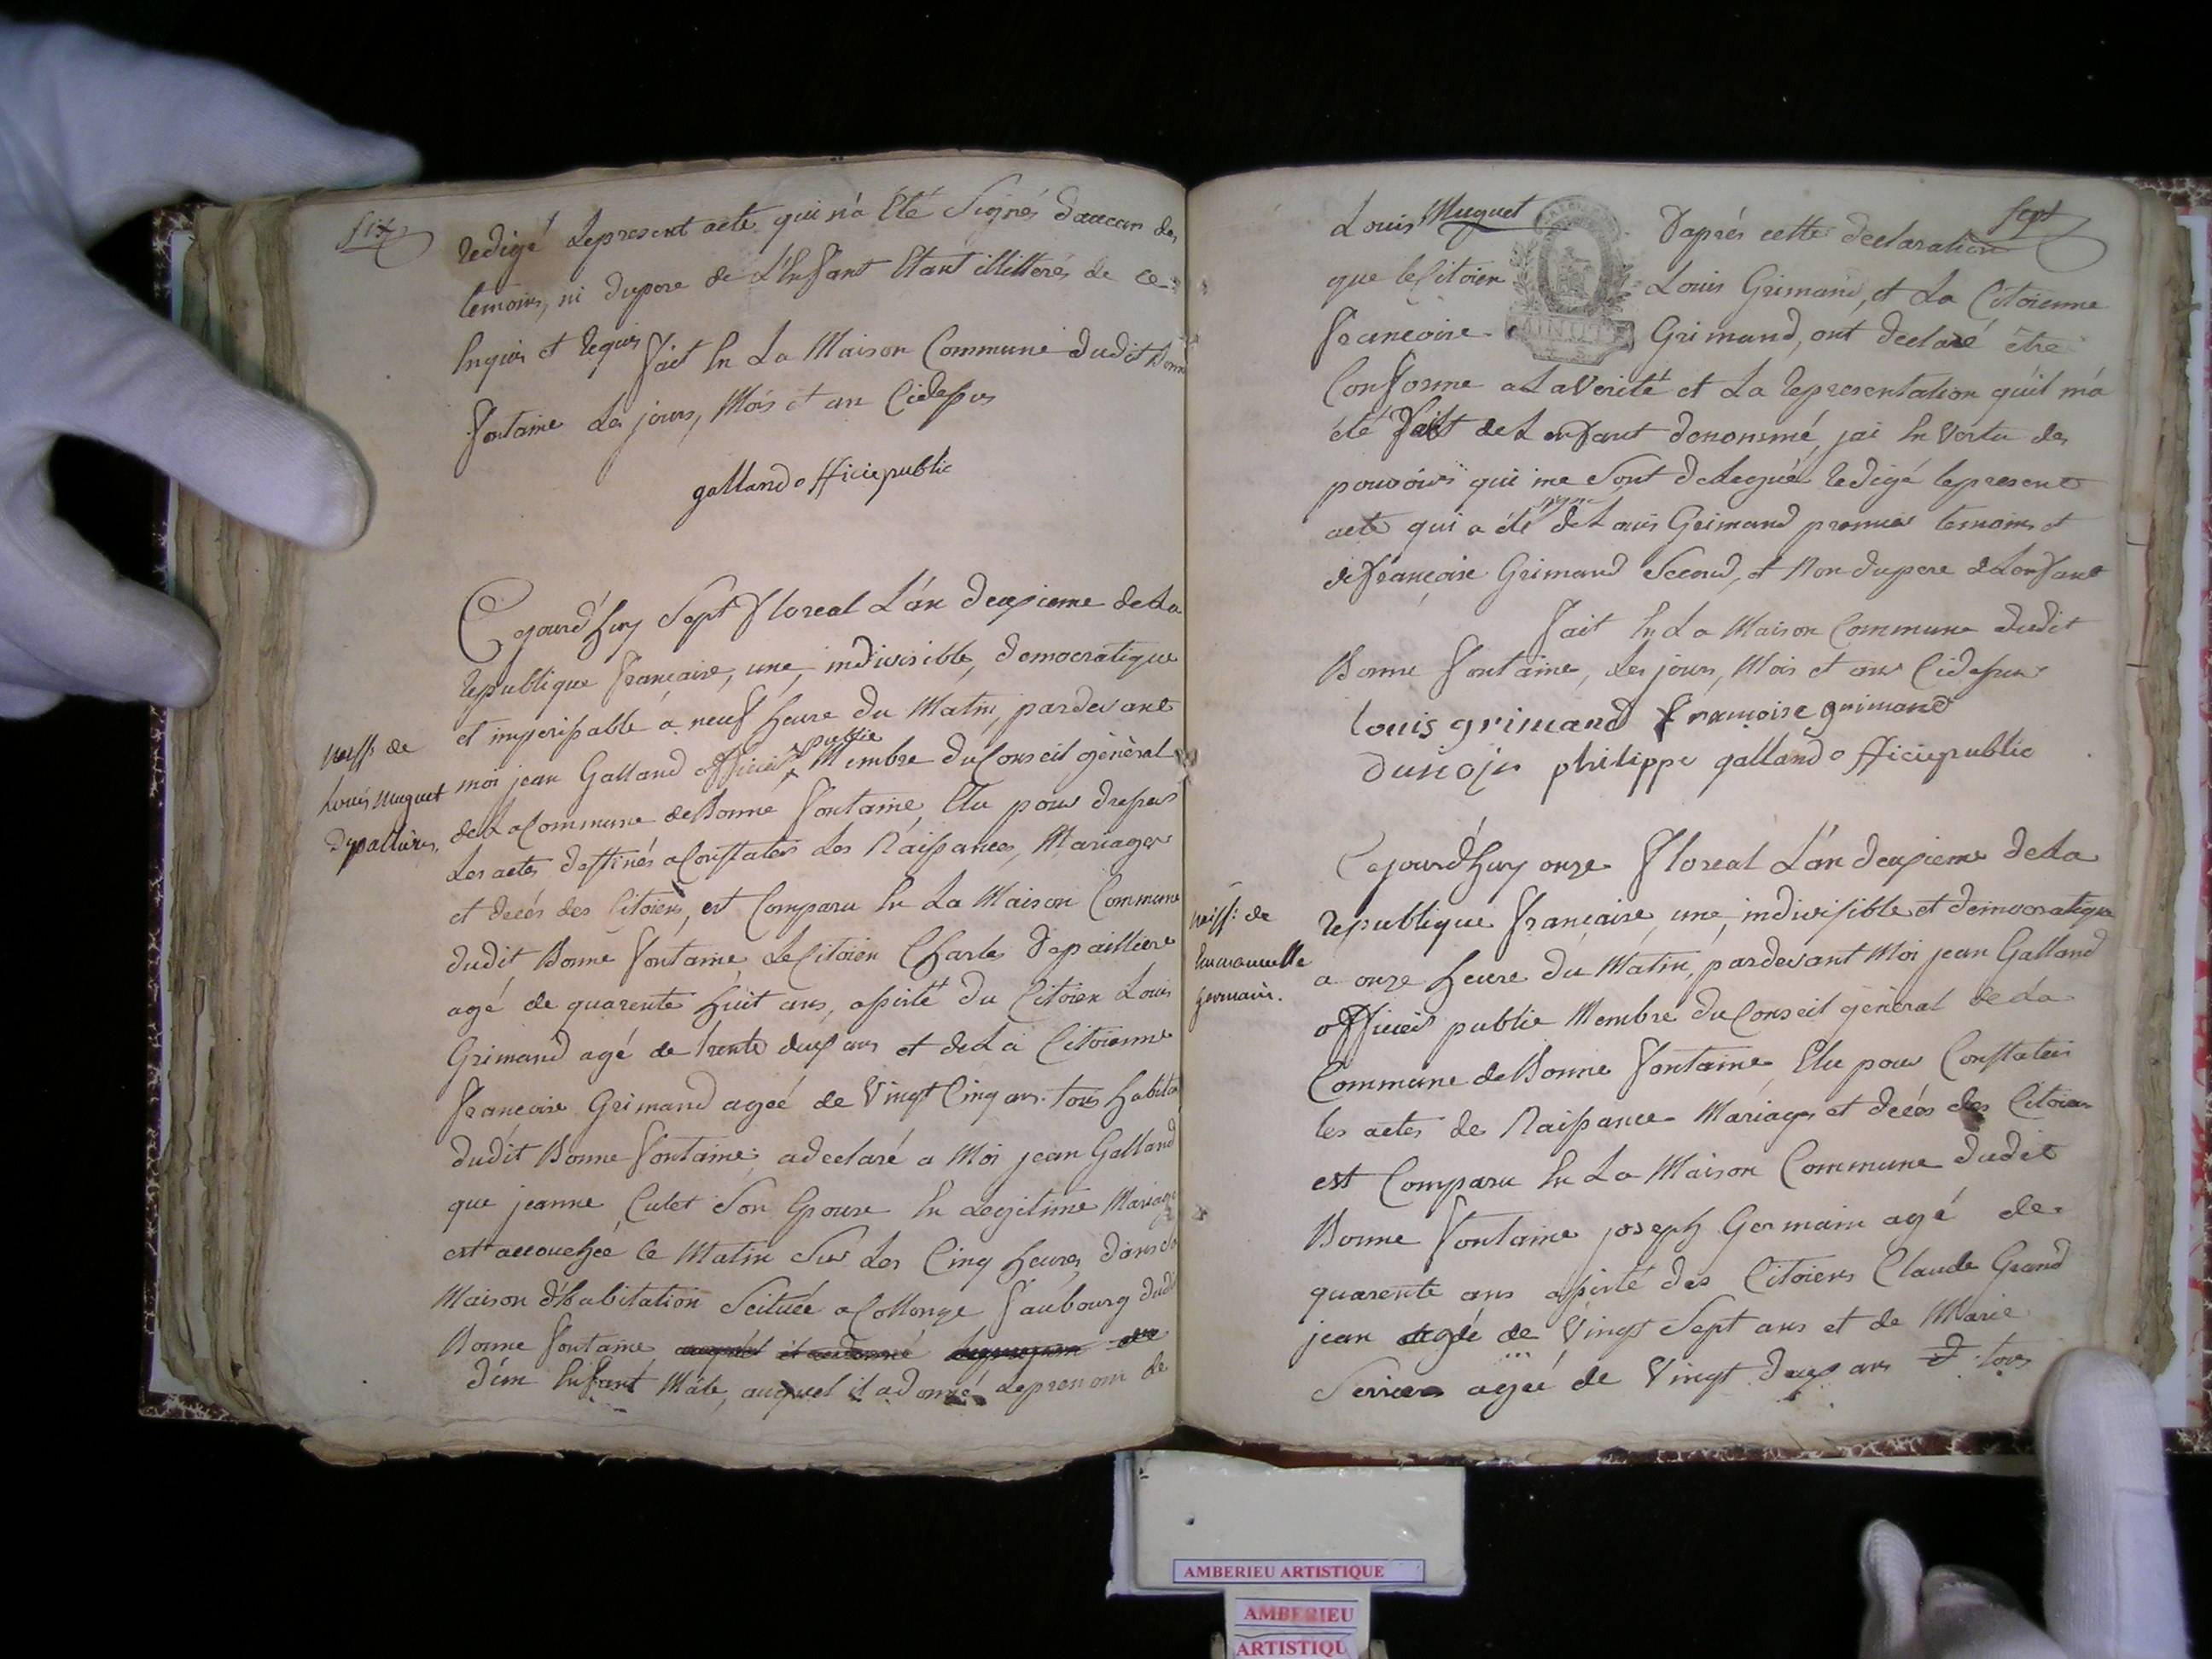 six
redigé le present acte qui n'a Eté Signés d'aucun des
temoins, ni du pere de L'Enfant Etant illitterés de ce
Enquis et requis fait En La Maison Commune dudit Bonne
fontaine Les jours, Mois et an Cidessus
galland officiepublic
Cejourd'huy Sept floreal L'an deuxieme de La
republique francaise, une, indivisible, democratique
et imperissable a neuf heure du Matin, pardevant
moi jean Galland officier public Membre du Conseil géneral
de La Commune de Bonne fontaine, Elu pour dresser
Les actes destinés a Constater Les Naissances, Mariages
et decés des Citoiens, est Comparu En La Maison Commune
dudit Bonne fontaine Le Citoien Charles Depailliere
agé de quarente huit ans, assisté du Citoien Louis
Grimand agé de trente deux ans et de La Citoienne
francoise Grimand ageé de Vingt Cinq ans tous habita
dudit Bonne fontaine, a declaré a Moi jean Galland
que jeanne Cutet Son Epouse En Legitime Mariage
est accouchée ce Matin Sur Les Cinq heures, dans sa
Maison d'habitation Scituée a Collonge faubourg dudi
Bonne fontaine
d'un Enfant Mâle, auquel il a donné Le prenom de
naiss. de
Louis Muguet
Dpallieres.
sept
Louis Muguet D'aprés cette declaration
que le Citoien Louis Grimand, et La Citoienne
francoise Grimand, ont declaré être
Conforme a La Verité et La representation qu'il m'a
été fait de L'enfant denommé, jai En Vertu des
pouvoirs qui me Sont delegués redigé le present
acte qui a été signé de Louis Grimand premier temoins et
de françoise Grimand Second, et Non du pere de L'enfant
fait En La Maison Commune dudit
Bonne fontaine, Les jours, Mois et an Cidessus
louis grimand francoise grimand
dunojer philippe galland officiepublic
Cejourd'huy onze floreal L'an deuxieme de La
republique francaise, une, indivisible et democratique
a onze heure du Matin, pardevant Moi jean Galland
officier public Membre du Conseil géneral de La
Commune de Bonne fontaine Elu pour Constater
les actes de Naissance Mariages et decés des Citoiens
est Comparu En La Maison Commune dudit
Bonne fontaine joseph Germain agé de
quarente ans assisté des Citoiens Claude Grand
jean agé de Vingt Sept ans et de Marie
ageé de Vingt deux ans tous
naiss: de
Emmanuelle
germain.
MINUTE
AMBERIEU ARTISTIQUE
AMBERIEU
ARTISTIQU